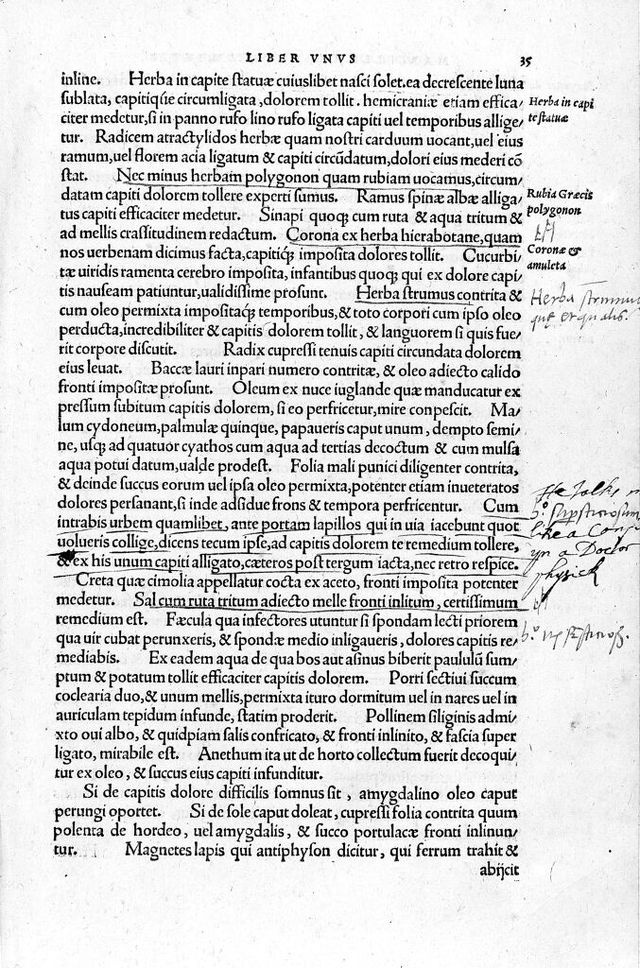 LIBER VNVS 35
inline. Herba in capite statuæ cuiuslibet nasci solet.ea decrescente luna
sublata, capitiq́ue circumligata, dolorem tollit. hemicraniæ etiam effica/
citer medetur, si in panno rufo lino rufo ligata capiti uel temporibus allige/
tur. Radicem atractylidos herbæ quam nostri carduum uocant, uel eius
ramum, uel florem acia ligatum & capiti circũdatum, dolori eius mederi cõ
stat. Nec minus herbam polygonon quam rubiam uocamus, circum/
datam capiti dolorem tollere experti sumus. Ramus spinæ albæ alliga/
tus capiti efficaciter medetur. Sinapi quoq; cum ruta & aqua tritum &
ad mellis crassitudinem redactum. Corona ex herba hierabotane, quam
nos uerbenam dicimus facta, capitiq́; imposita dolores tollit. Cucurbi/
tæ uiridis ramenta cerebro imposita, infantibus quoq; qui ex dolore capi/
tis nauseam patiuntur, ualidissime prosunt. Herba strumus contrita &
cum oleo permixta impositaq́; temporibus, & toto corpori cum ipso oleo
perducta, incredibiliter & capitis dolorem tollit, & languorem si quis fue/
rit corpore discutit. Radix cupressi tenuis capiti circundata dolorem
eius leuat. Baccæ lauri inpari numero contritæ, & oleo adiecto calido
fronti impositæ prosunt. Oleum ex nuce iuglande quæ manducatur ex
pressum subitum capitis dolorem, si eo perfricetur, mire conpescit. Ma/
lum cydoneum, palmulæ quinque, papaueris caput unum, dempto semi/
ne, usq; ad quatuor cyathos cum aqua ad tertias decoctum & cum mulsa
aqua potui datum, ualde prodest. Folia mali punici diligenter contrita,
& deinde succus eorum uel ipsa oleo permixta, potenter etiam inueteratos
dolores persanant, si inde adsidue frons & tempora perfricentur. Cum
intrabis urbem quamlibet, ante portam lapillos qui in uia iacebunt quot
uolueris collige, dicens tecum ipse, ad capitis dolorem te remedium tollere,
& ex his unum capiti alligato, cæteros post tergum iacta, nec retro respice.
Creta quæ cimolia appellatur cocta ex aceto, fronti imposita potenter
medetur. Sal cum ruta tritum adiecto melle fronti inlitum, certissimum
remedium est. Fæcula qua infectores utuntur si spondam lecti priorem
qua uir cubat perunxeris, & spondæ medio inligaueris, dolores capitis re/
mediabis. Ex eadem aqua de qua bos aut asinus biberit paululũ sum/
ptum & potatum tollit efficaciter capitis dolorem. Porri sectiui succum
coclearia duo, & unum mellis, permixta ituro dormitum uel in nares uel in
auriculam tepidum infunde, statim proderit. Pollinem siliginis admi/
xto oui albo, & quidpiam salis confricato, & fronti inlinito, & fascia super
ligato, mirabile est. Anethum ita ut de horto collectum fuerit decoqui/
tur ex oleo, & succus eius capiti infunditur.
Si de capitis dolore difficilis somnus sit, amygdalino oleo caput
perungi oportet. Si de sole caput doleat, cupressi folia contrita quum
polenta de hordeo, uel amygdalis, & succo portulacæ fronti inlinun/
tur. Magnetes lapis qui antiphyson dicitur, qui ferrum trahit &
abijcit
Herba in capi
te statuæ
Rubia Græcis
polygonon
Coronæ &
amuleta
Herba strumus
quę et qualis.
He talks
like a
a Doctor
physick